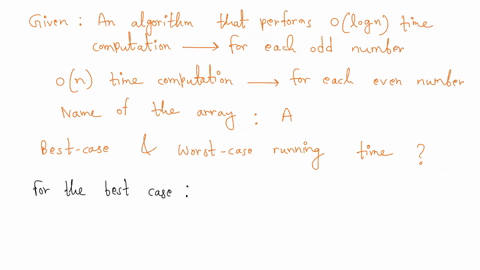 Given : An algorithm that performs O(logn) time
computation → for each odd number
O(n) time computation → for each even number
Name of the array : A
Best-case & Worst-case running time ?
For the best case :